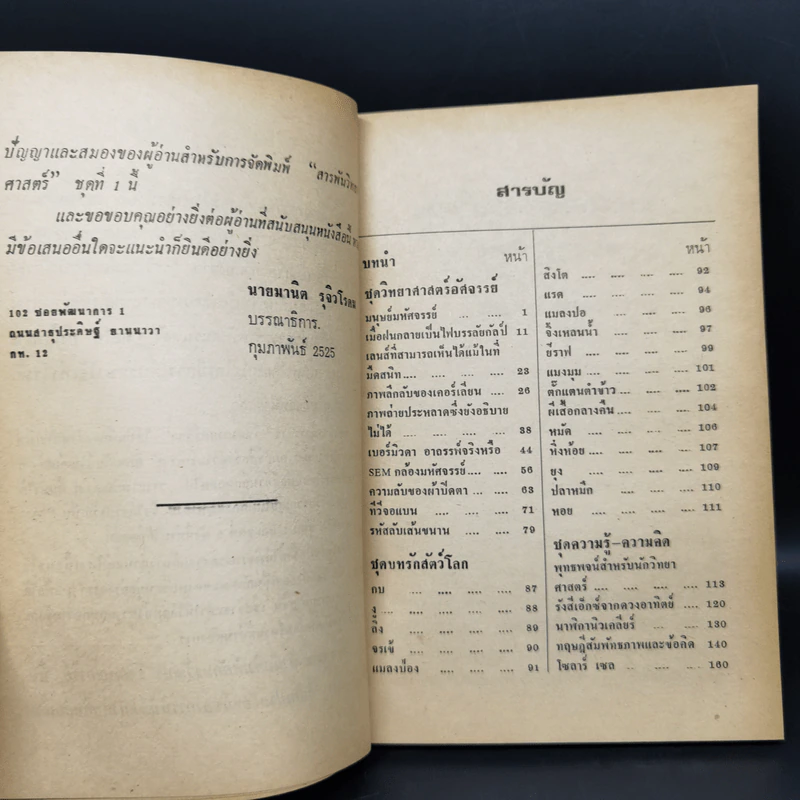 ปัญญาและสมองของผู้อ่านสำหรับการจัดพิมพ์ “สารพันวิทยา
ศาสตร์” ชุดที่ 1 นี้
และขอขอบคุณอย่างยิ่งต่อผู้อ่านที่สนับสนุนหนังสือนี้
มีข้อเสนออื่นใดจะแนะนำก็ยินดีอย่างยิ่ง
นายมานิต รุจิวโรดม
102 ซอยพัฒนาการ 1
บรรณาธิการ.
ถนนสาธุประดิษฐ์ ยานนาวา
กุมภาพันธ์ 2525
กท. 12
สารบัญ
บทนำ หน้า
ชุดวิทยาศาสตร์อัศจรรย์
มนุษย์มหัศจรรย์ .... .... .... 1
เมื่อฝนกลายเป็นไฟบรรลัยกัลป์ 11
เลนส์ที่สามารถเห็นได้แม้ในที่
มืดสนิท.... .... .... .... 23
ภาพลึกลับของเคอร์เลียน .... 26
ภาพถ่ายประหลาดซึ่งยังอธิบาย
ไม่ได้ .... .... .... .... 38
เบอร์มิวดา อาถรรพ์จริงหรือ 44
SEM กล้องมหัศจรรย์.... .... 56
ความลับของผ้าปิดตา .... .... 63
ทีวีจอแบน .... .... .... 71
รหัสลับเส้นขนาน .... .... 79
ชุดบทรักสัตว์โลก
กบ .... .... .... .... 87
งู .... .... .... .... 88
ลิง .... .... .... .... 89
จรเข้ .... .... .... .... 90
แมลงป่อง .... .... .... 91
หน้า
สิงโต .... .... .... .... 92
แรด .... .... .... .... 94
แมลงปอ .... .... .... 96
จิงเหลนน้ำ .... .... .... 97
ยีราฟ .... .... .... .... 99
แมงมุม .... .... .... 101
ตั๊กแตนตำข้าว .... .... .... 102
ผีเสื้อกลางคืน .... .... .... 104
หมัด .... .... .... .... 106
หิ่งห้อย .... .... .... .... 107
ยุง .... .... .... .... 109
ปลาหมึก .... .... .... 110
หอย .... .... .... .... 111
ชุดความรู้–ความคิด
พุทธพจน์สำหรับนักวิทยา
ศาสตร์ .... .... .... .... 113
รังสีเอ็กซ์จากดวงอาทิตย์ .... 120
นาฬิกานิวเคลียร์ .... .... 130
ทฤษฎีสัมพัทธภาพและข้อคิด 140
โซลาร์ เซล .... .... .... 160